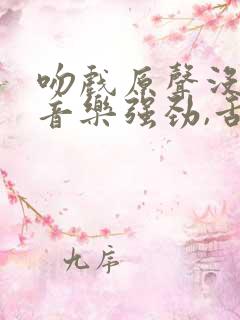 吻戲原聲沒
音樂强劲,舌
九序